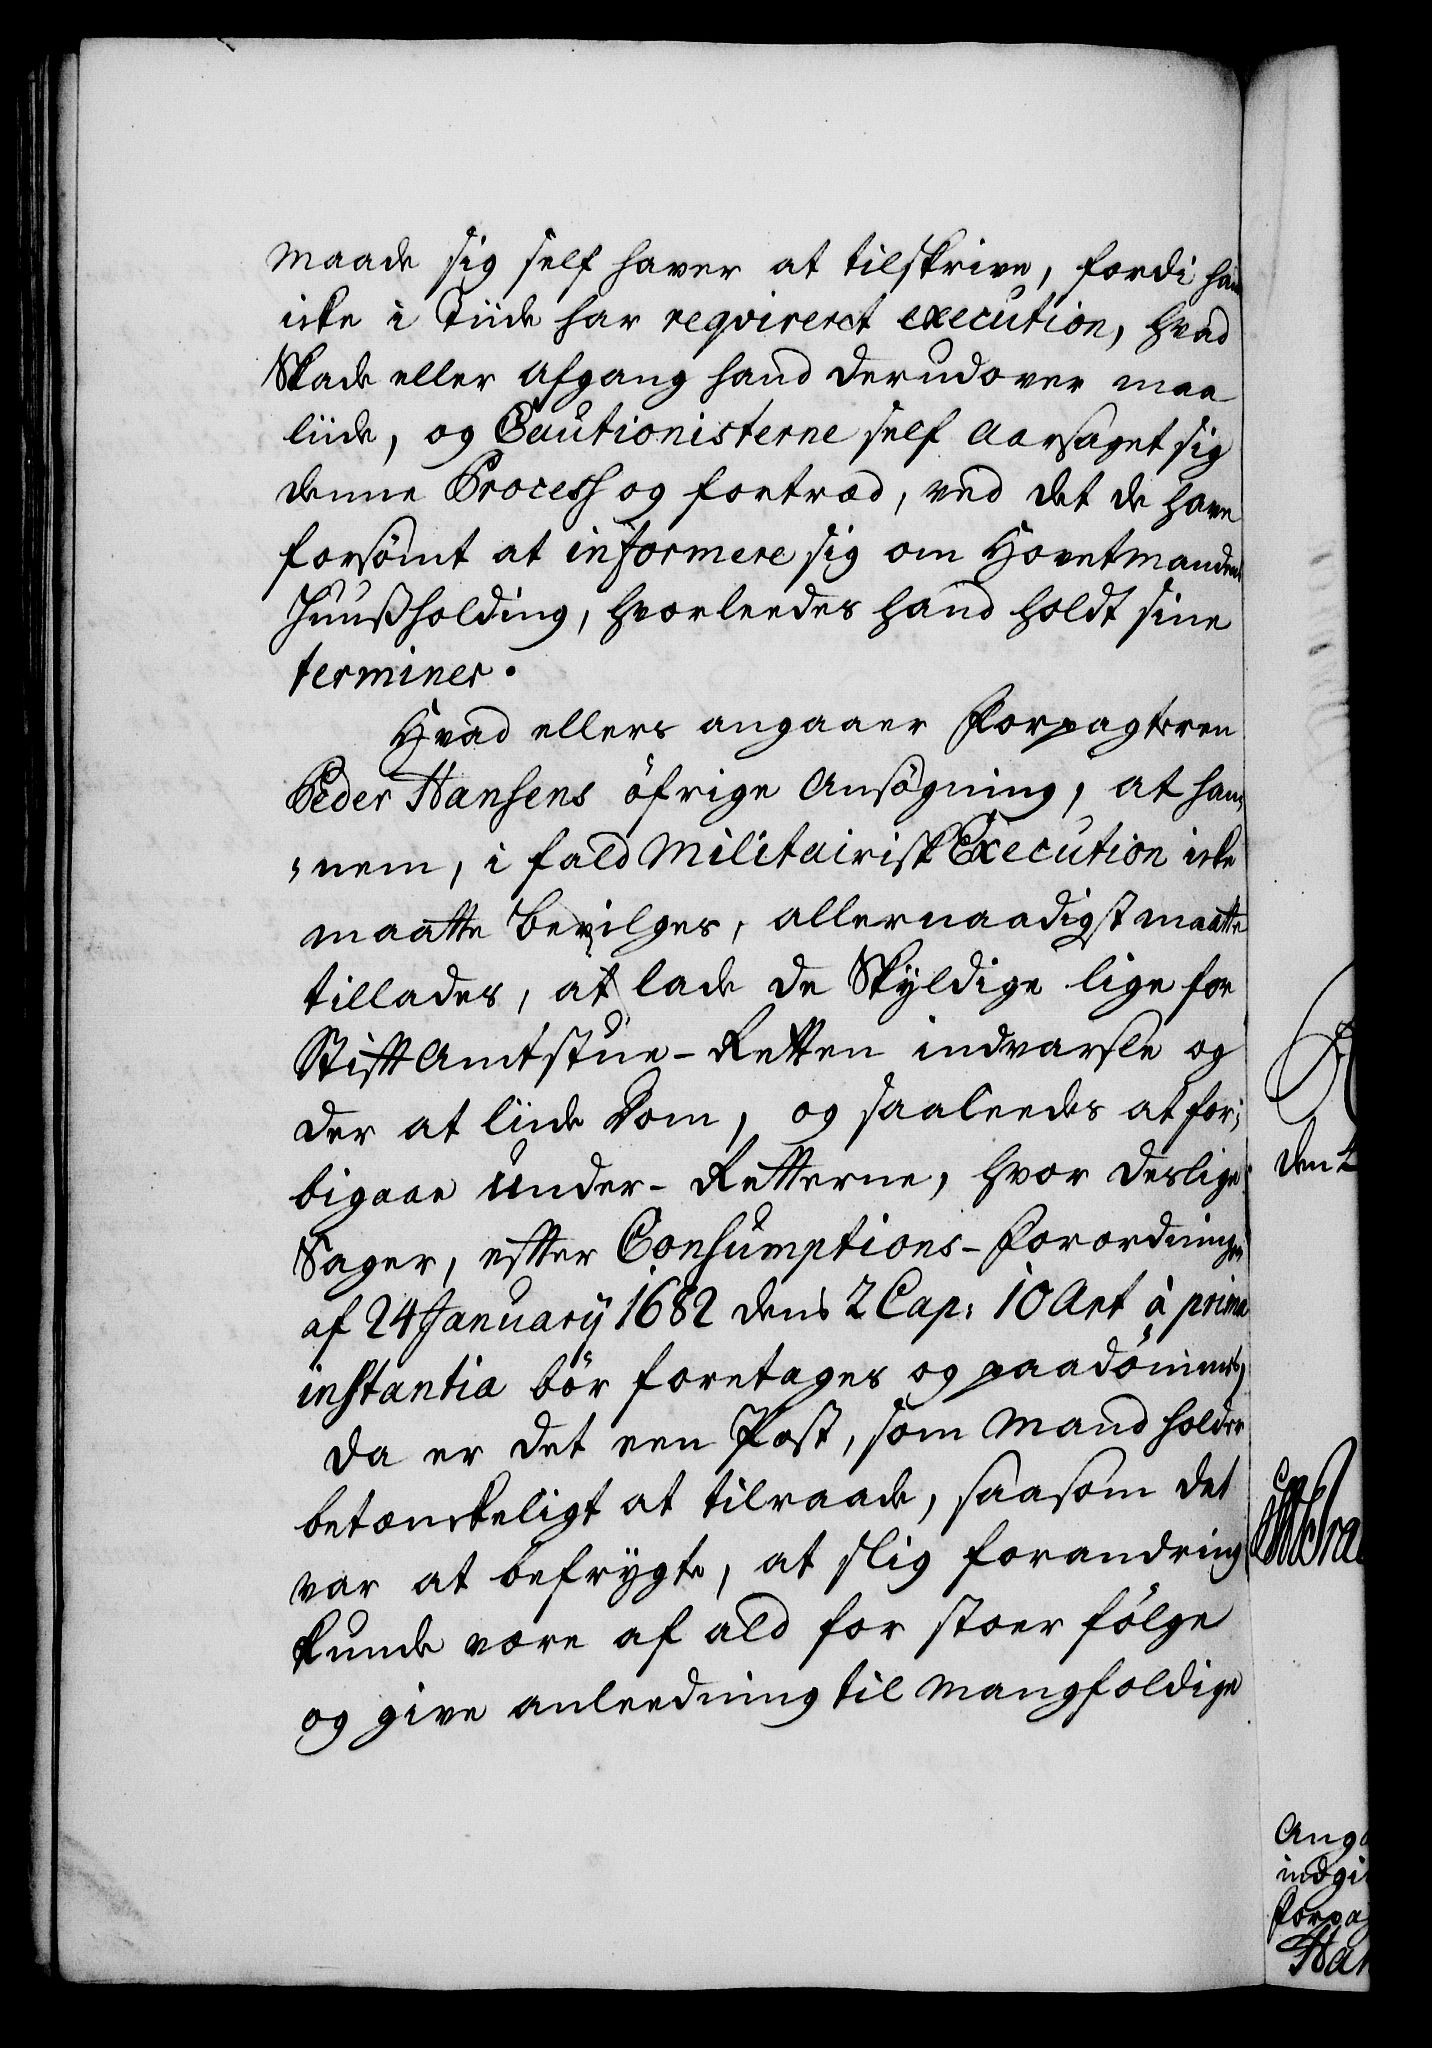 maade sig self haver at tilskrive, fordi hand
icke i Tiide har reqvireret execution, hvad
Skade eller Afgang hand derudover maa
liide, og Cautionisterne self Aarsaget sig
denne Process og fortræd, ved det de have
forsömt at informere sig om Hovetmandens
Huußholding, hvorleedes hand holdt sine
terminer.
Hvad ellers angaaer Forpagteren
Peder Hansens öfrige Ansögning, at ham¬
nem, i fald Militairisk Execution icke
maatte bevilges, allernaadigst maatte
tillades, at lade de Skyldige lige for
Stift Amtstue-Retten indvarsle og
der at liide Dom, og saaleedes at for¬
bigaae Under-Retterne, hvor deslige
Sager, efter Consumptions-Forordningen
af 24 January 1682 dens 2 Cap: 10 Art à prima
instantia bör foretages og paadömmes,
Da er det een Post, som Mand holder
betænckeligt at tilraade, saasom det
var at befrygte, at slig forandring
kunde være af ald for stoer fölge
og give anleedning til Mangfoldige
den 2
Anga
indgi
Forpa
Han